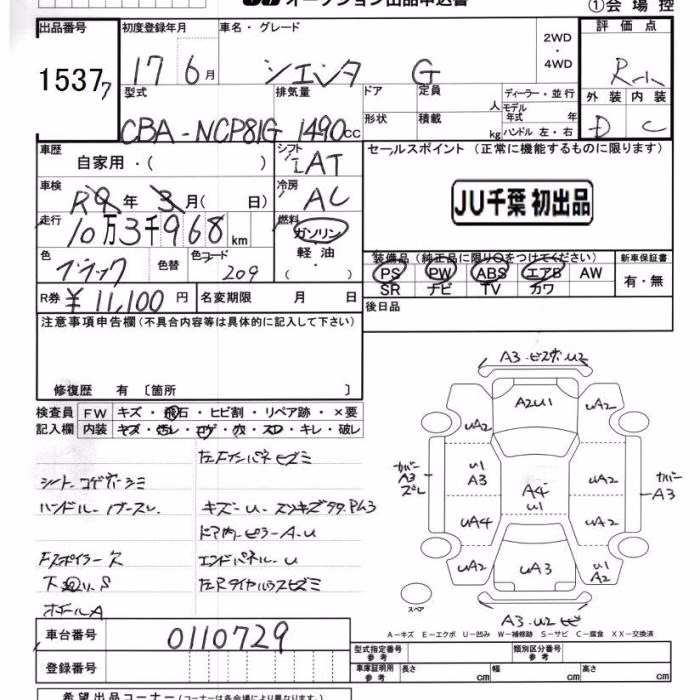 JU オークション出品申込書
①会場控
出品番号 初度登録年月 車名・グレード 評価点
2WD・4WD
15377 17 6月 シエンタ G R-小
型式 排気量 ドア 定員 人 ディーラー・並行 外装 内装
モデル年式 年
CBA-NCP81G 1490CC 形状 積載 kg ハンドル 左・右 D C
車歴 自家用・( ) シフト IAT セールスポイント (正常に機能するものに限ります)
車検 R9年3月( 日) 冷房 AC
JU千葉 初出品
走行 10万3千968km 燃料 ガソリン
軽油
( )
色 ブラック 色替 色コード 209
装備品 (純正品に限り○をつけてください) 新車保証書
PS PW ABS エアB AW 有・無
SR ナビ TV カワ
R券 ¥11,100円 名変期限 月 日 後日品
注意事項申告欄 (不具合内容等は具体的に記入して下さい)
修復歴 有 〔箇所 〕
検査員 FW キズ・飛石・ヒビ割・リペア跡・×要
記入欄 内装 キズ・汚レ・コゲ・穴・スレ・キレ・破レ
左Fインパネヒズミ
シート コゲ ボー シミ
ハンドル
キズ・U
ドア内・ピラーA.U
Fスポイラーヌ エンドパネル・U
下廻り.S
ホイールA
A3 U2
A2U1
UA2 UA2
カバー A3 ズレ
U1 A3
UA2
カバー A3
A4 U1
UA4 UA2
UA2 UA3 U1 A2
スペア
A3.U2
A-キズ E-エクボ U-凹み W-補修跡 S-サビ C-腐食 XX-交換済
車台番号 0110729
型式指定番号 参考 類別区分番号 参考
登録番号 車庫証明用 参考 長さ cm 幅 cm 高さ cm
希望出品コーナー (コーナーは各会場により異なります。)